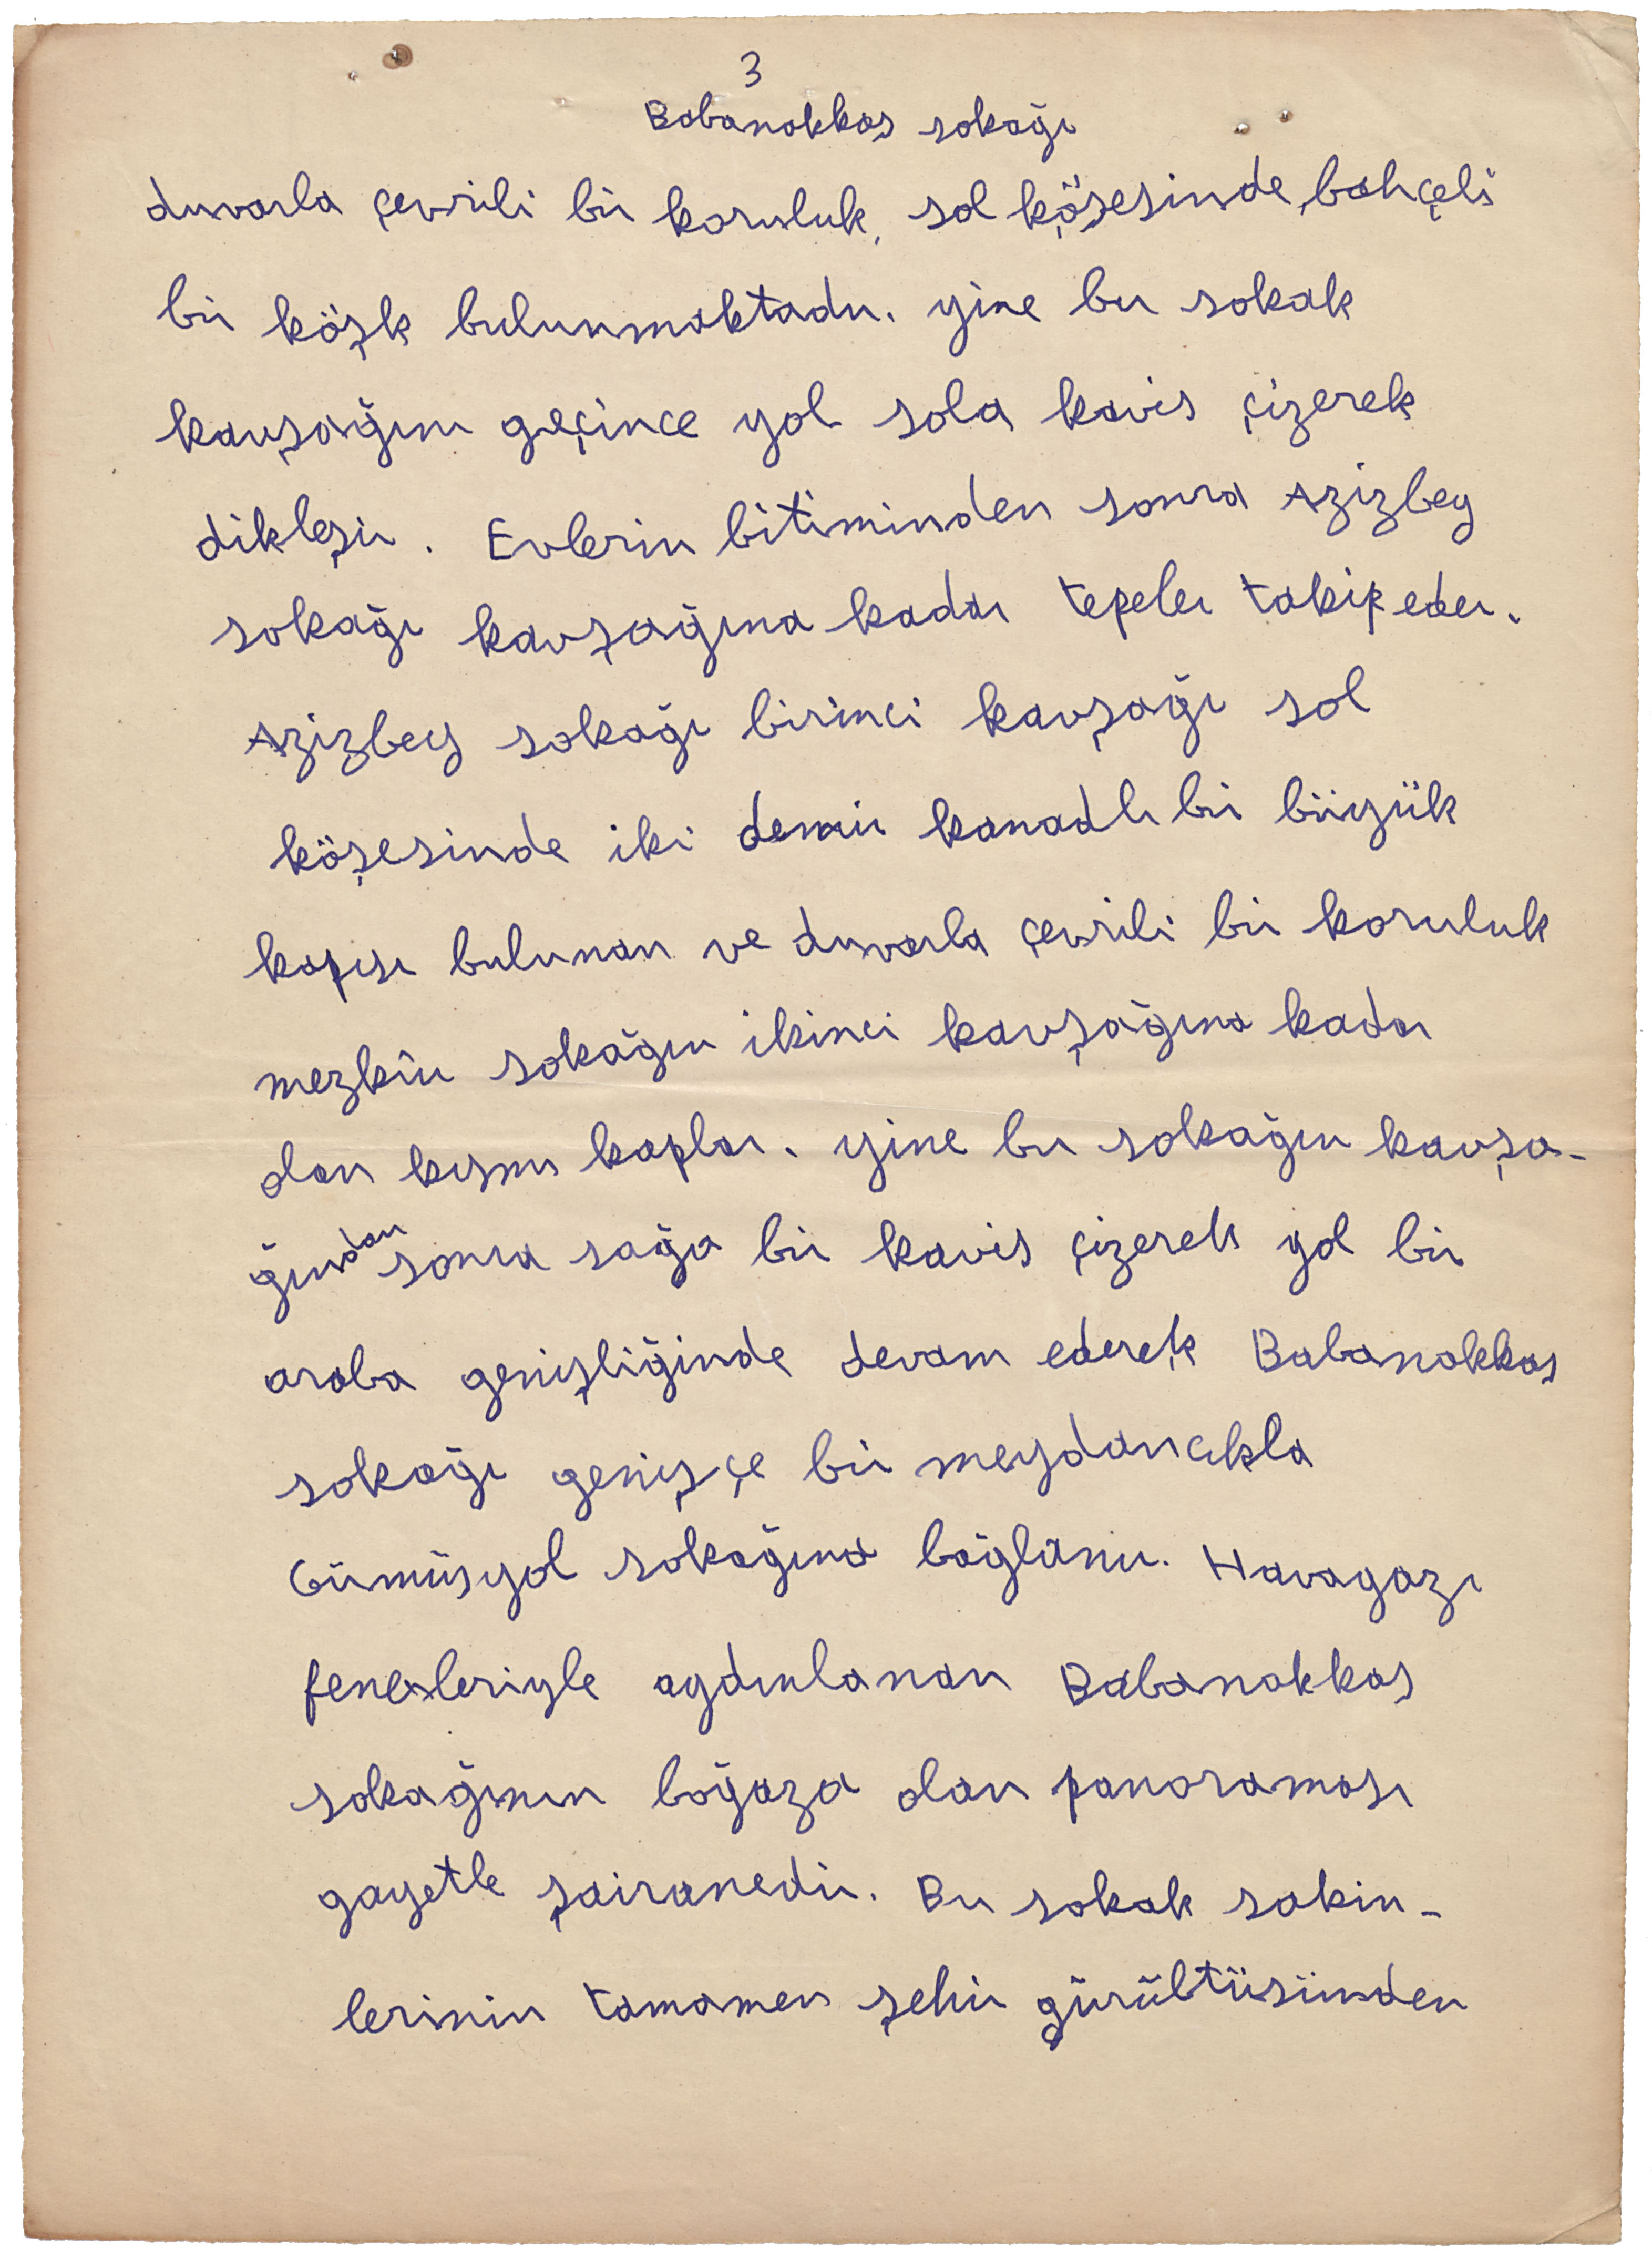 3
Babanakkaş sokağı
duvarla çevrili bir koruluk, sol köşesinde bahçeli
bir köşk bulunmaktadır. yine bu sokak
kavşağını geçince yol sola kavis çizerek
dikleşir. Evlerin bitiminden sonra Azizbey
sokağı kavşağına kadar tepeler takip eder.
Azizbey sokağı birinci kavşağı sol
köşesinde iki demir kanadlı bir büyük
kapısı bulunan ve duvarla çevrili bir koruluk
mezkûr sokağın ikinci kavşağına kadar
olan kısmı kaplar. yine bu sokağın kavşa-
ğından sonra sağa bir kavis çizerek yol bir
araba genişliğinde devam ederek Babanakkaş
sokağı genişçe bir meydancıkla
Gümüşyol sokağına bağlanır. Havagazı
fenerleriyle aydınlanan Babanakkaş
sokağının boğaza olan panoraması
gayetle şairanedir. Bu sokak sakin-
lerinin tamamen şehir gürültüsünden